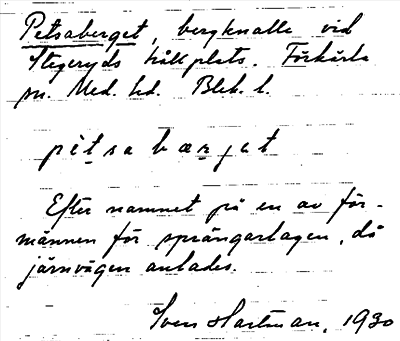 Petsaberget, bergknalle vid
Stegeryds hållplats. Förkärla
sn. Med. hd. Blek. l.
pitsa bærjat
Efter namnet på en av för-
männen för sprängarlagen, då
järnvägen anlades.
Sven Hartman, 1930